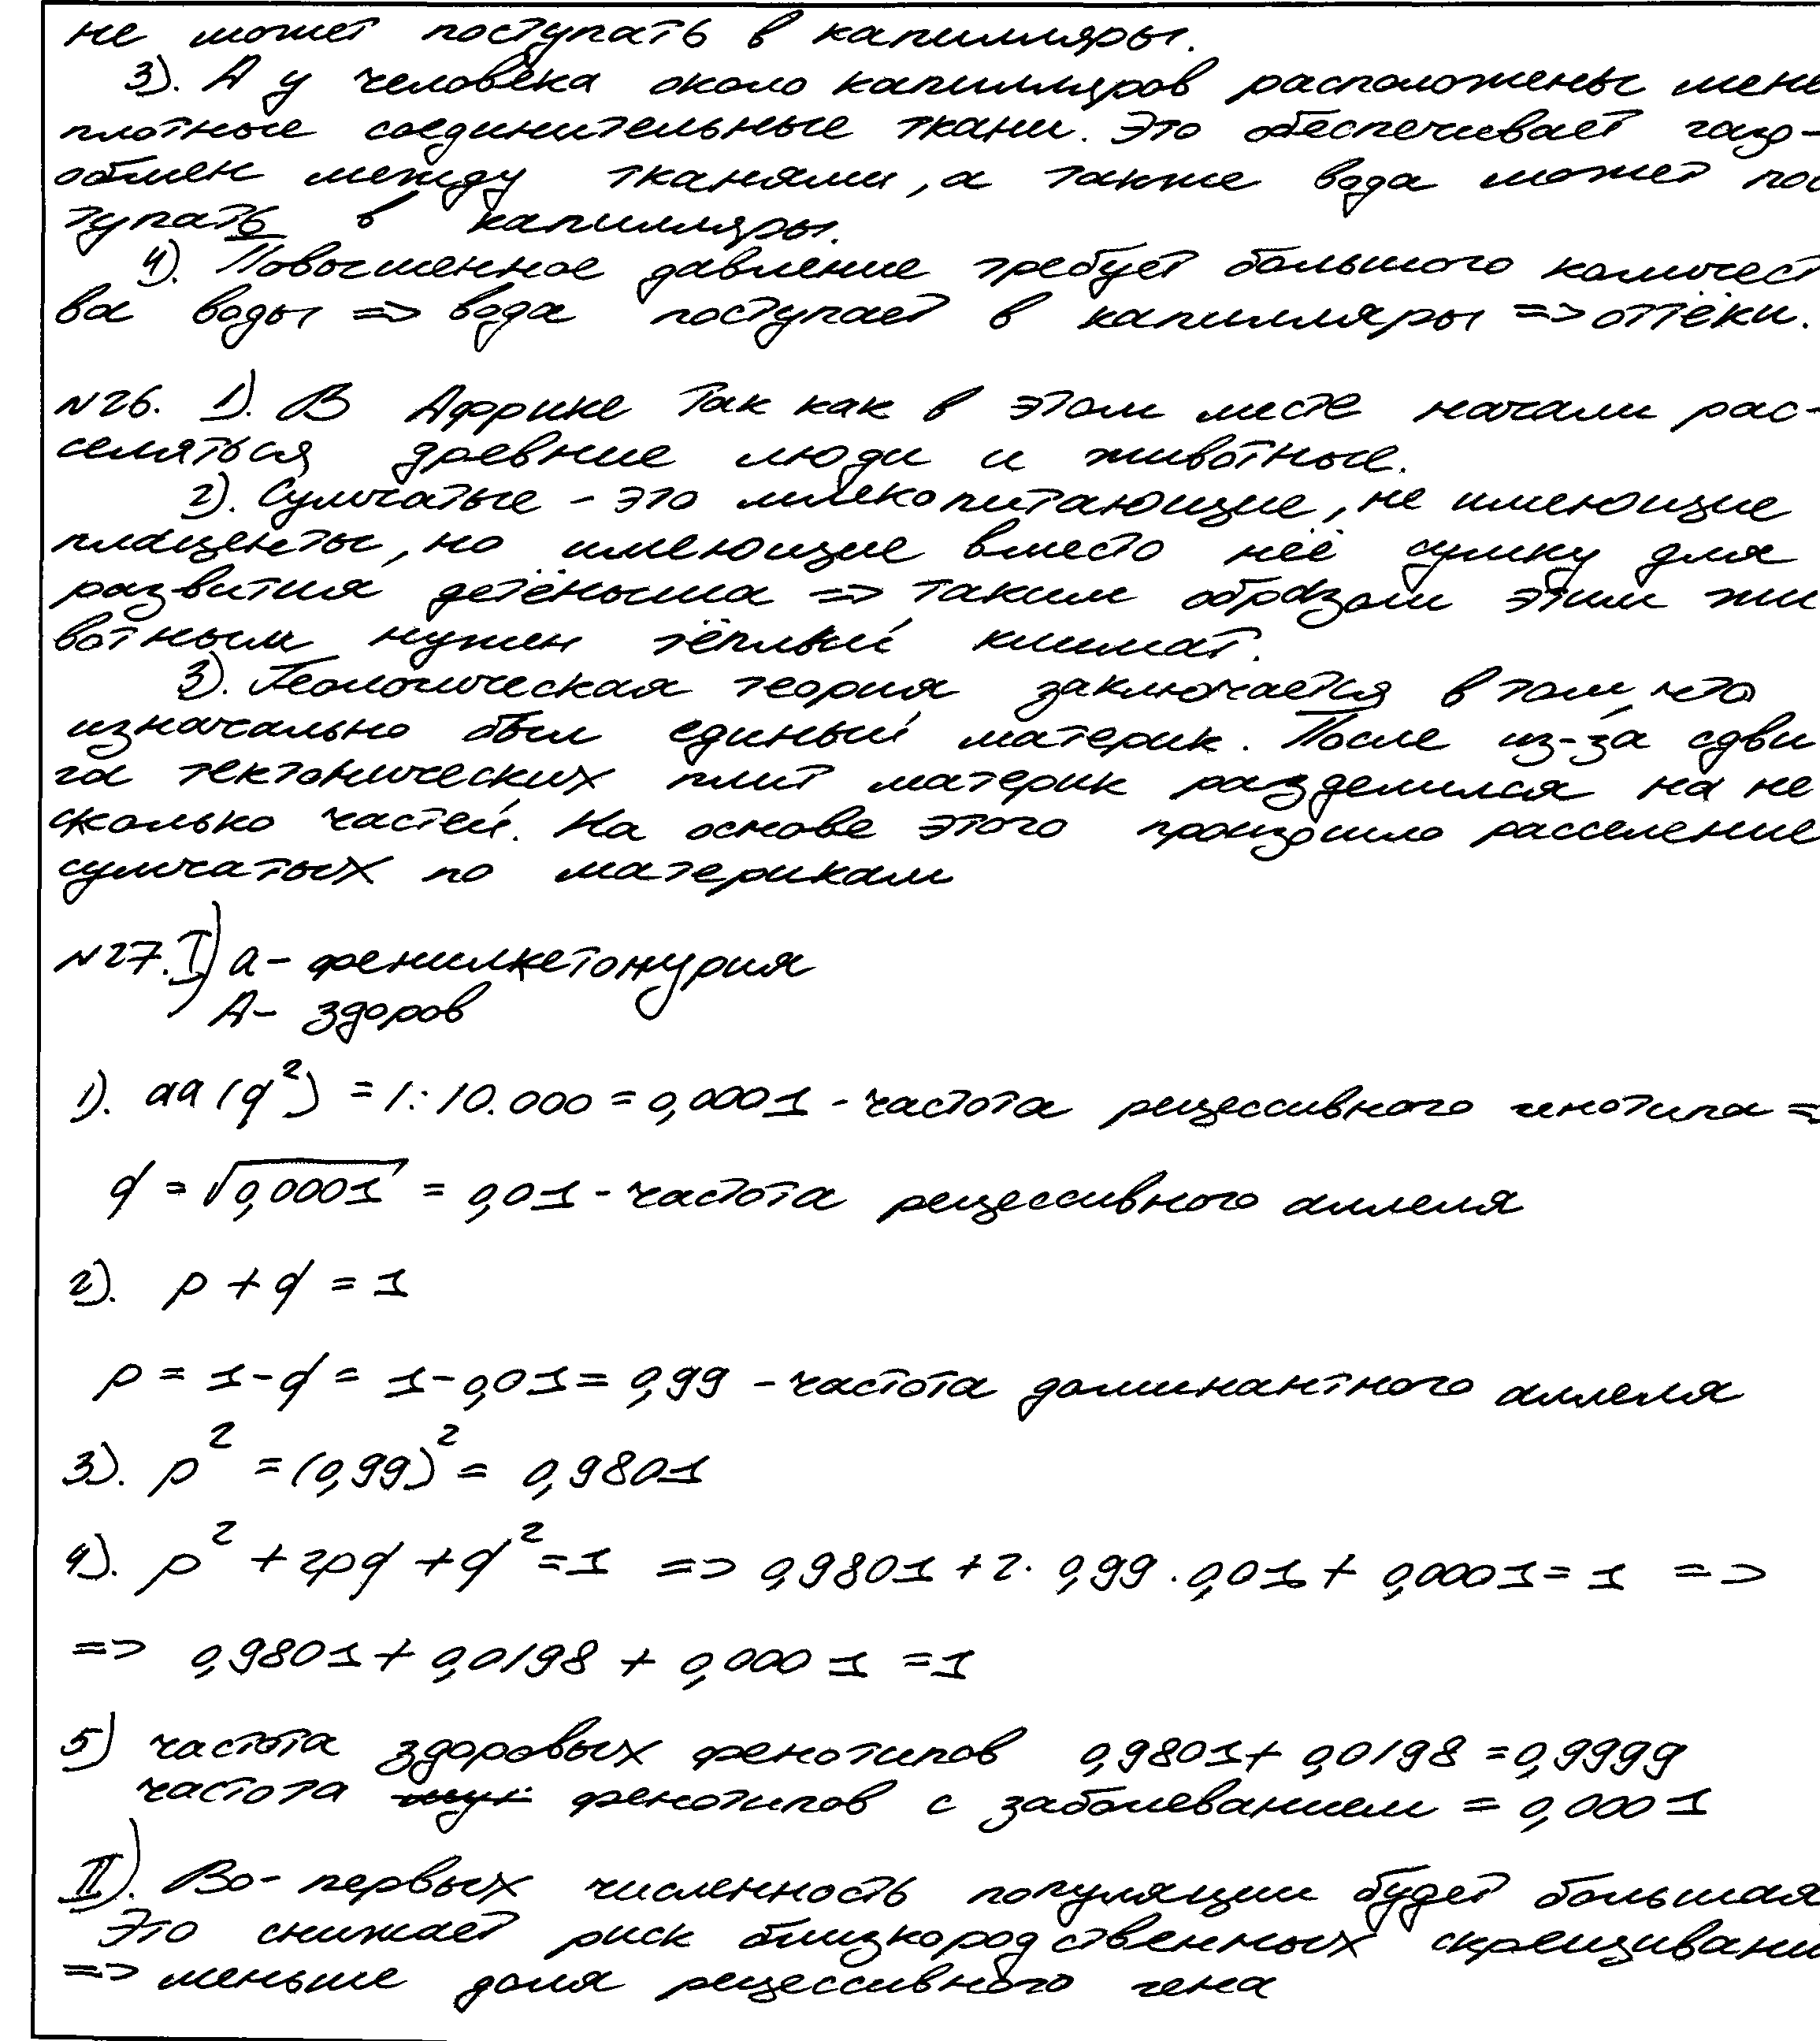 не может поступать в капилляры.
3). А у человека около капилляров расположены мене
плотные соединительные ткани. Это обеспечивает газо-
обмен между тканями, а также вода может пос
тупать в капилляры.
4). Повышенное давление требует большого количест
ва воды => вода поступает в капилляры => отёки.
№26. 1). В Африке так как в этом месте начали рас-
селяться древние люди и животные.
2). Сумчатые - это млекопитающие, не имеющие
плаценты, но имеющие вместо неё сумку для
развития детёныша => таким образом этим жи
вотным нужен тёплый климат.
3). Геологическая теория заключается в том, что
изначально был единый материк. После из-за сдви
га тектонических плит материк разделился на не
сколько частей. На основе этого произошло расселение
сумчатых по материкам
№27. I) а - фенилкетонурия
А - здоров
1). аа (q²) = 1:10.000 = 0,0001 - частота рецессивного генотипа =>
q = √0,0001 = 0,01 - частота рецессивного аллеля
2). p + q = 1
p = 1-q = 1-0,01 = 0,99 - частота доминантного аллеля
3). p² = (0,99)² = 0,9801
4). p² + 2pq + q² = 1 => 0,9801 + 2 · 0,99 · 0,01 + 0,0001 = 1 =>
=> 0,9801 + 0,0198 + 0,0001 = 1
5) частота здоровых фенотипов 0,9801 + 0,0198 = 0,9999
частота фенотипов с заболеванием = 0,0001
II). Во-первых численность популяции будет большая
Это снижает риск близкородственных скрещивани
=> меньше доля рецессивного гена